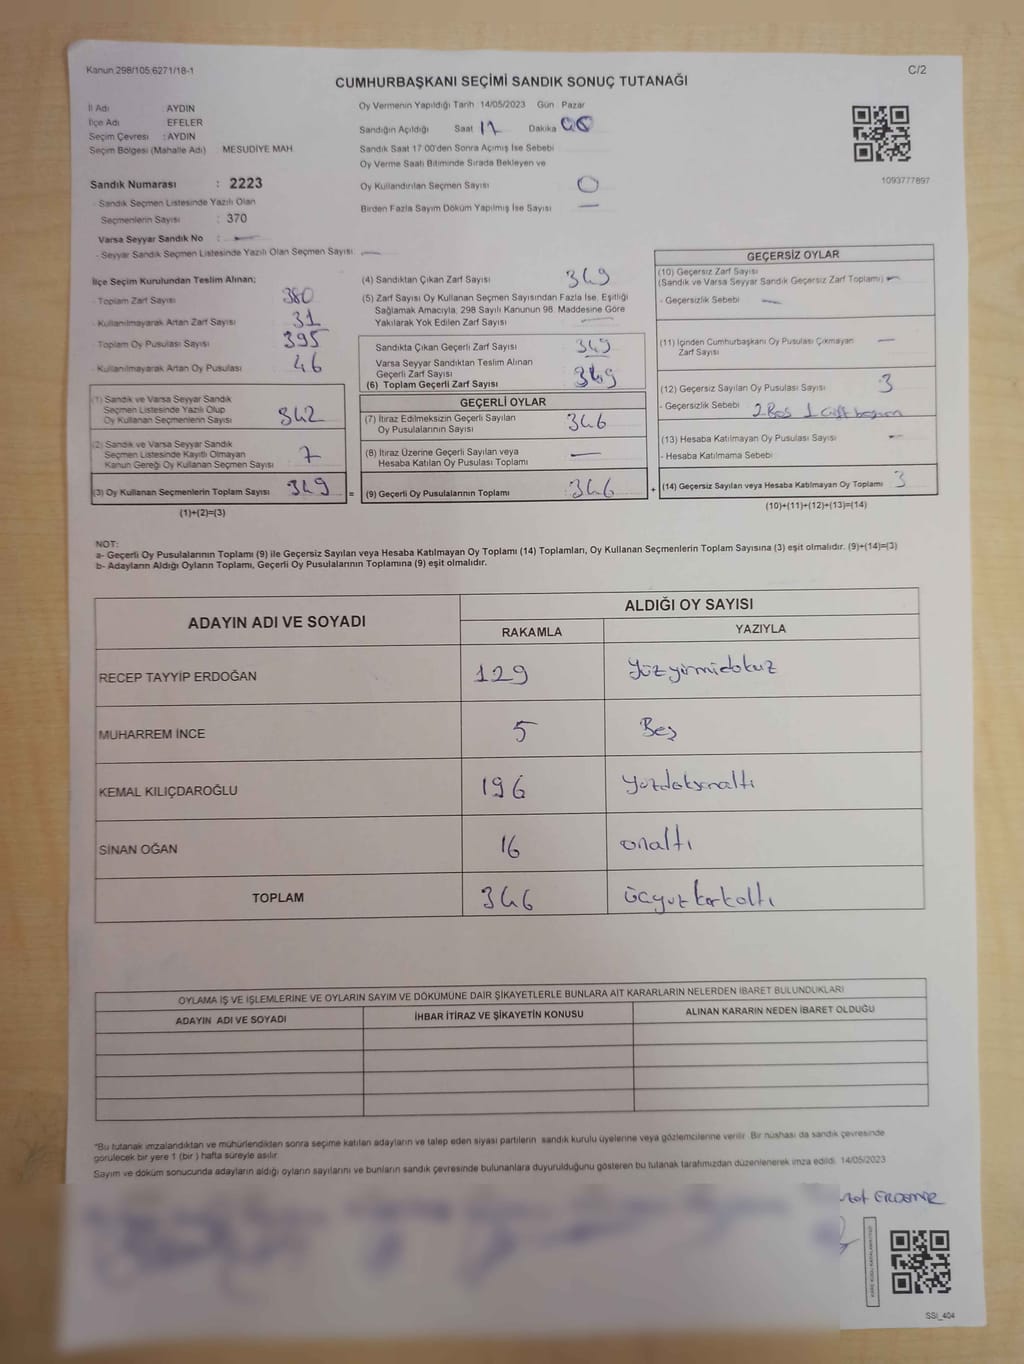 Kanun 298/105 6271/18-1
C/2
CUMHURBAŞKANI SEÇİMİ SANDIK SONUÇ TUTANAĞI
İl Adı : AYDIN
İlçe Adı : EFELER
Seçim Çevresi : AYDIN
Seçim Bölgesi (Mahalle Adı) MESUDİYE MAH.
Sandık Numarası : 2223
- Sandık Seçmen Listesinde Yazılı Olan
Seçmenlerin Sayısı : 370
Varsa Seyyar Sandık No : —
- Seyyar Sandık Seçmen Listesinde Yazılı Olan Seçmen Sayısı —
Oy Vermenin Yapıldığı Tarih 14/05/2023 Gün Pazar
Sandığın Açıldığı Saat 17 Dakika 00
Sandık Saat 17:00'den Sonra Açımış İse Sebebi
Oy Verme Saati Bitiminde Sırada Bekleyen ve
Oy Kullandırılan Seçmen Sayısı 0
Birden Fazla Sayım Döküm Yapılmış İse Sayısı —
1093777897
İlçe Seçim Kurulundan Teslim Alınan;
- Toplam Zarf Sayısı 380
- Kullanılmayarak Artan Zarf Sayısı 31
- Toplam Oy Pusulası Sayısı 395
- Kullanılmayarak Artan Oy Pusulası 46
(1) Sandık ve Varsa Seyyar Sandık
Seçmen Listesinde Yazılı Olup
Oy Kullanan Seçmenlerin Sayısı 342
(2) Sandık ve Varsa Seyyar Sandık
Seçmen Listesinde Kayıtlı Olmayan
Kanun Gereği Oy Kullanan Seçmen Sayısı 7
(3) Oy Kullanan Seçmenlerin Toplam Sayısı 349 =
(1)+(2)=(3)
(4) Sandıktan Çıkan Zarf Sayısı 349
(5) Zarf Sayısı Oy Kullanan Seçmen Sayısından Fazla İse, Eşitliği
Sağlamak Amacıyla, 298 Sayılı Kanunun 98. Maddesine Göre
Yakılarak Yok Edilen Zarf Sayısı —
Sandıkta Çıkan Geçerli Zarf Sayısı 349
Varsa Seyyar Sandıktan Teslim Alınan
Geçerli Zarf Sayısı
(6) Toplam Geçerli Zarf Sayısı 349
GEÇERLİ OYLAR
(7) İtiraz Edilmeksizin Geçerli Sayılan
Oy Pusulalarının Sayısı 346
(8) İtiraz Üzerine Geçerli Sayılan veya
Hesaba Katılan Oy Pusulası Toplamı —
(9) Geçerli Oy Pusulalarının Toplamı 346 +
GEÇERSİZ OYLAR
(10) Geçersiz Zarf Sayısı
(Sandık ve Varsa Seyyar Sandık Geçersiz Zarf Toplamı) —
- Geçersizlik Sebebi —
(11) İçinden Cumhurbaşkanı Oy Pusulası Çıkmayan —
Zarf Sayısı
(12) Geçersiz Sayılan Oy Pusulası Sayısı 3
- Geçersizlik Sebebi 2 Boş 1 Çift
(13) Hesaba Katılmayan Oy Pusulası Sayısı —
- Hesaba Katılmama Sebebi
(14) Geçersiz Sayılan veya Hesaba Katılmayan Oy Toplamı 3
(10)+(11)+(12)+(13)=(14)
NOT:
a- Geçerli Oy Pusulalarının Toplamı (9) ile Geçersiz Sayılan veya Hesaba Katılmayan Oy Toplamı (14) Toplamları, Oy Kullanan Seçmenlerin Toplam Sayısına (3) eşit olmalıdır. (9)+(14)=(3)
b- Adayların Aldığı Oyların Toplamı, Geçerli Oy Pusulalarının Toplamına (9) eşit olmalıdır.
ADAYIN ADI VE SOYADI
ALDIĞI OY SAYISI
RAKAMLA YAZIYLA
RECEP TAYYİP ERDOĞAN 129 Yüzyirmidokuz
MUHARREM İNCE 5 Beş
KEMAL KILIÇDAROĞLU 196 yüzdoksanaltı
SİNAN OĞAN 16 onaltı
TOPLAM 346 üçyüzkırkaltı
OYLAMA İŞ VE İŞLEMLERİNE VE OYLARIN SAYIM VE DÖKÜMÜNE DAİR ŞİKAYETLERLE BUNLARA AİT KARARLARIN NELERDEN İBARET BULUNDUKLARI
ADAYIN ADI VE SOYADI İHBAR İTİRAZ VE ŞİKAYETİN KONUSU ALINAN KARARIN NEDEN İBARET OLDUĞU
"Bu tutanak imzalandıktan ve mühürlendikten sonra seçime katılan adayların ve talep eden siyasi partilerin sandık kurulu üyelerine veya gözlemcilerine verilir. Bir nüshası da sandık çevresinde
görülecek bir yere 1 (bir ) hafta süreyle asılır.
Sayım ve döküm sonucunda adayların aldığı oyların sayılarını ve bunların sandık çevresinde bulunanlara duyurulduğunu gösteren bu tutanak tarafımızdan düzenlenerek imza edildi. 14/05/2023
ERDEMİR
SSI_404